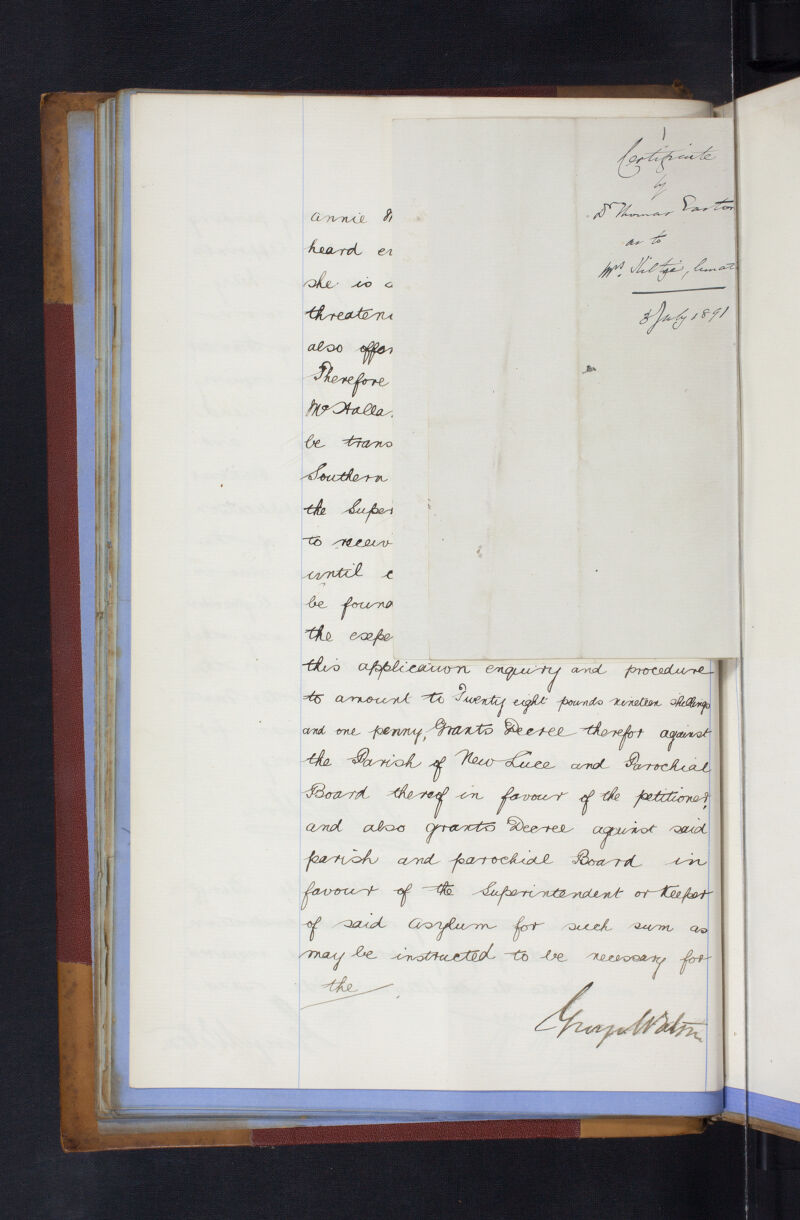 1
Certificate
by
Dr Thomas Easton
as to
Mrs.
3 July 1891
annie
heard
she is
threaten
also
Therefore
McHalla
be trans
Southern
the Super
to receiv
until
be found
the expe
this application enquiry and procedure
to amount to Twenty eight pounds nineteen shillings
and one penny, Grants Decree therefor against
the Parish of New Luce and Parochial
Board thereof in favour of the petitioner,
and also grants Decree against said
parish and parochial Board in
favour of the Superintendent or Keeper
of said asylum for such sum as
may be instructed to be necessary for
the
George Watson